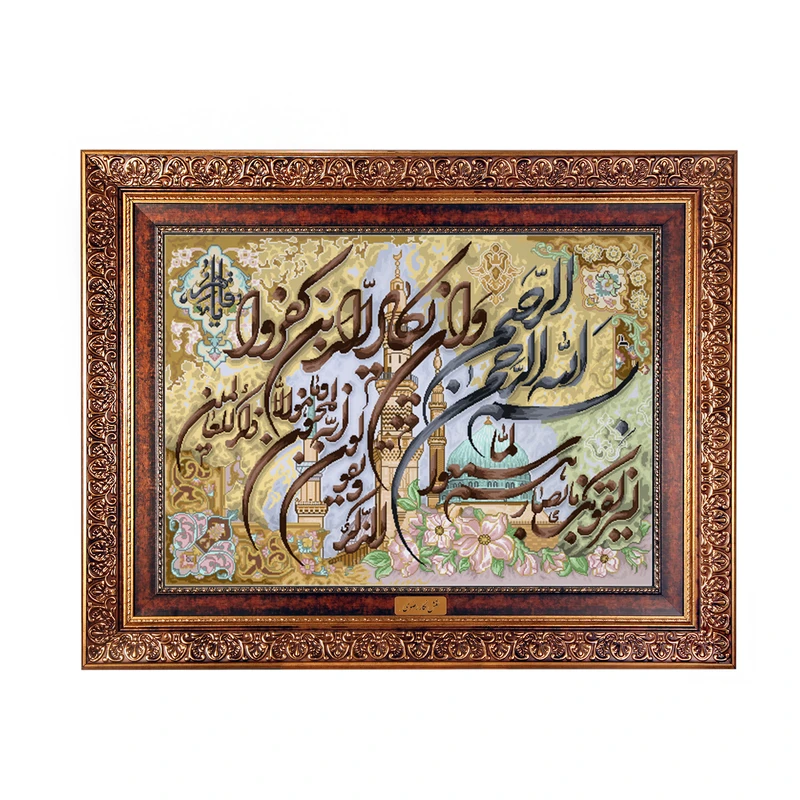 بسم الله الرحمن الرحیم
وان یکاد الذین کفروا
لیزلقونک بابصارهم لما سمعوا
الذکر ویقولون انه لمجنون
وما هو الا ذکر للعالمین